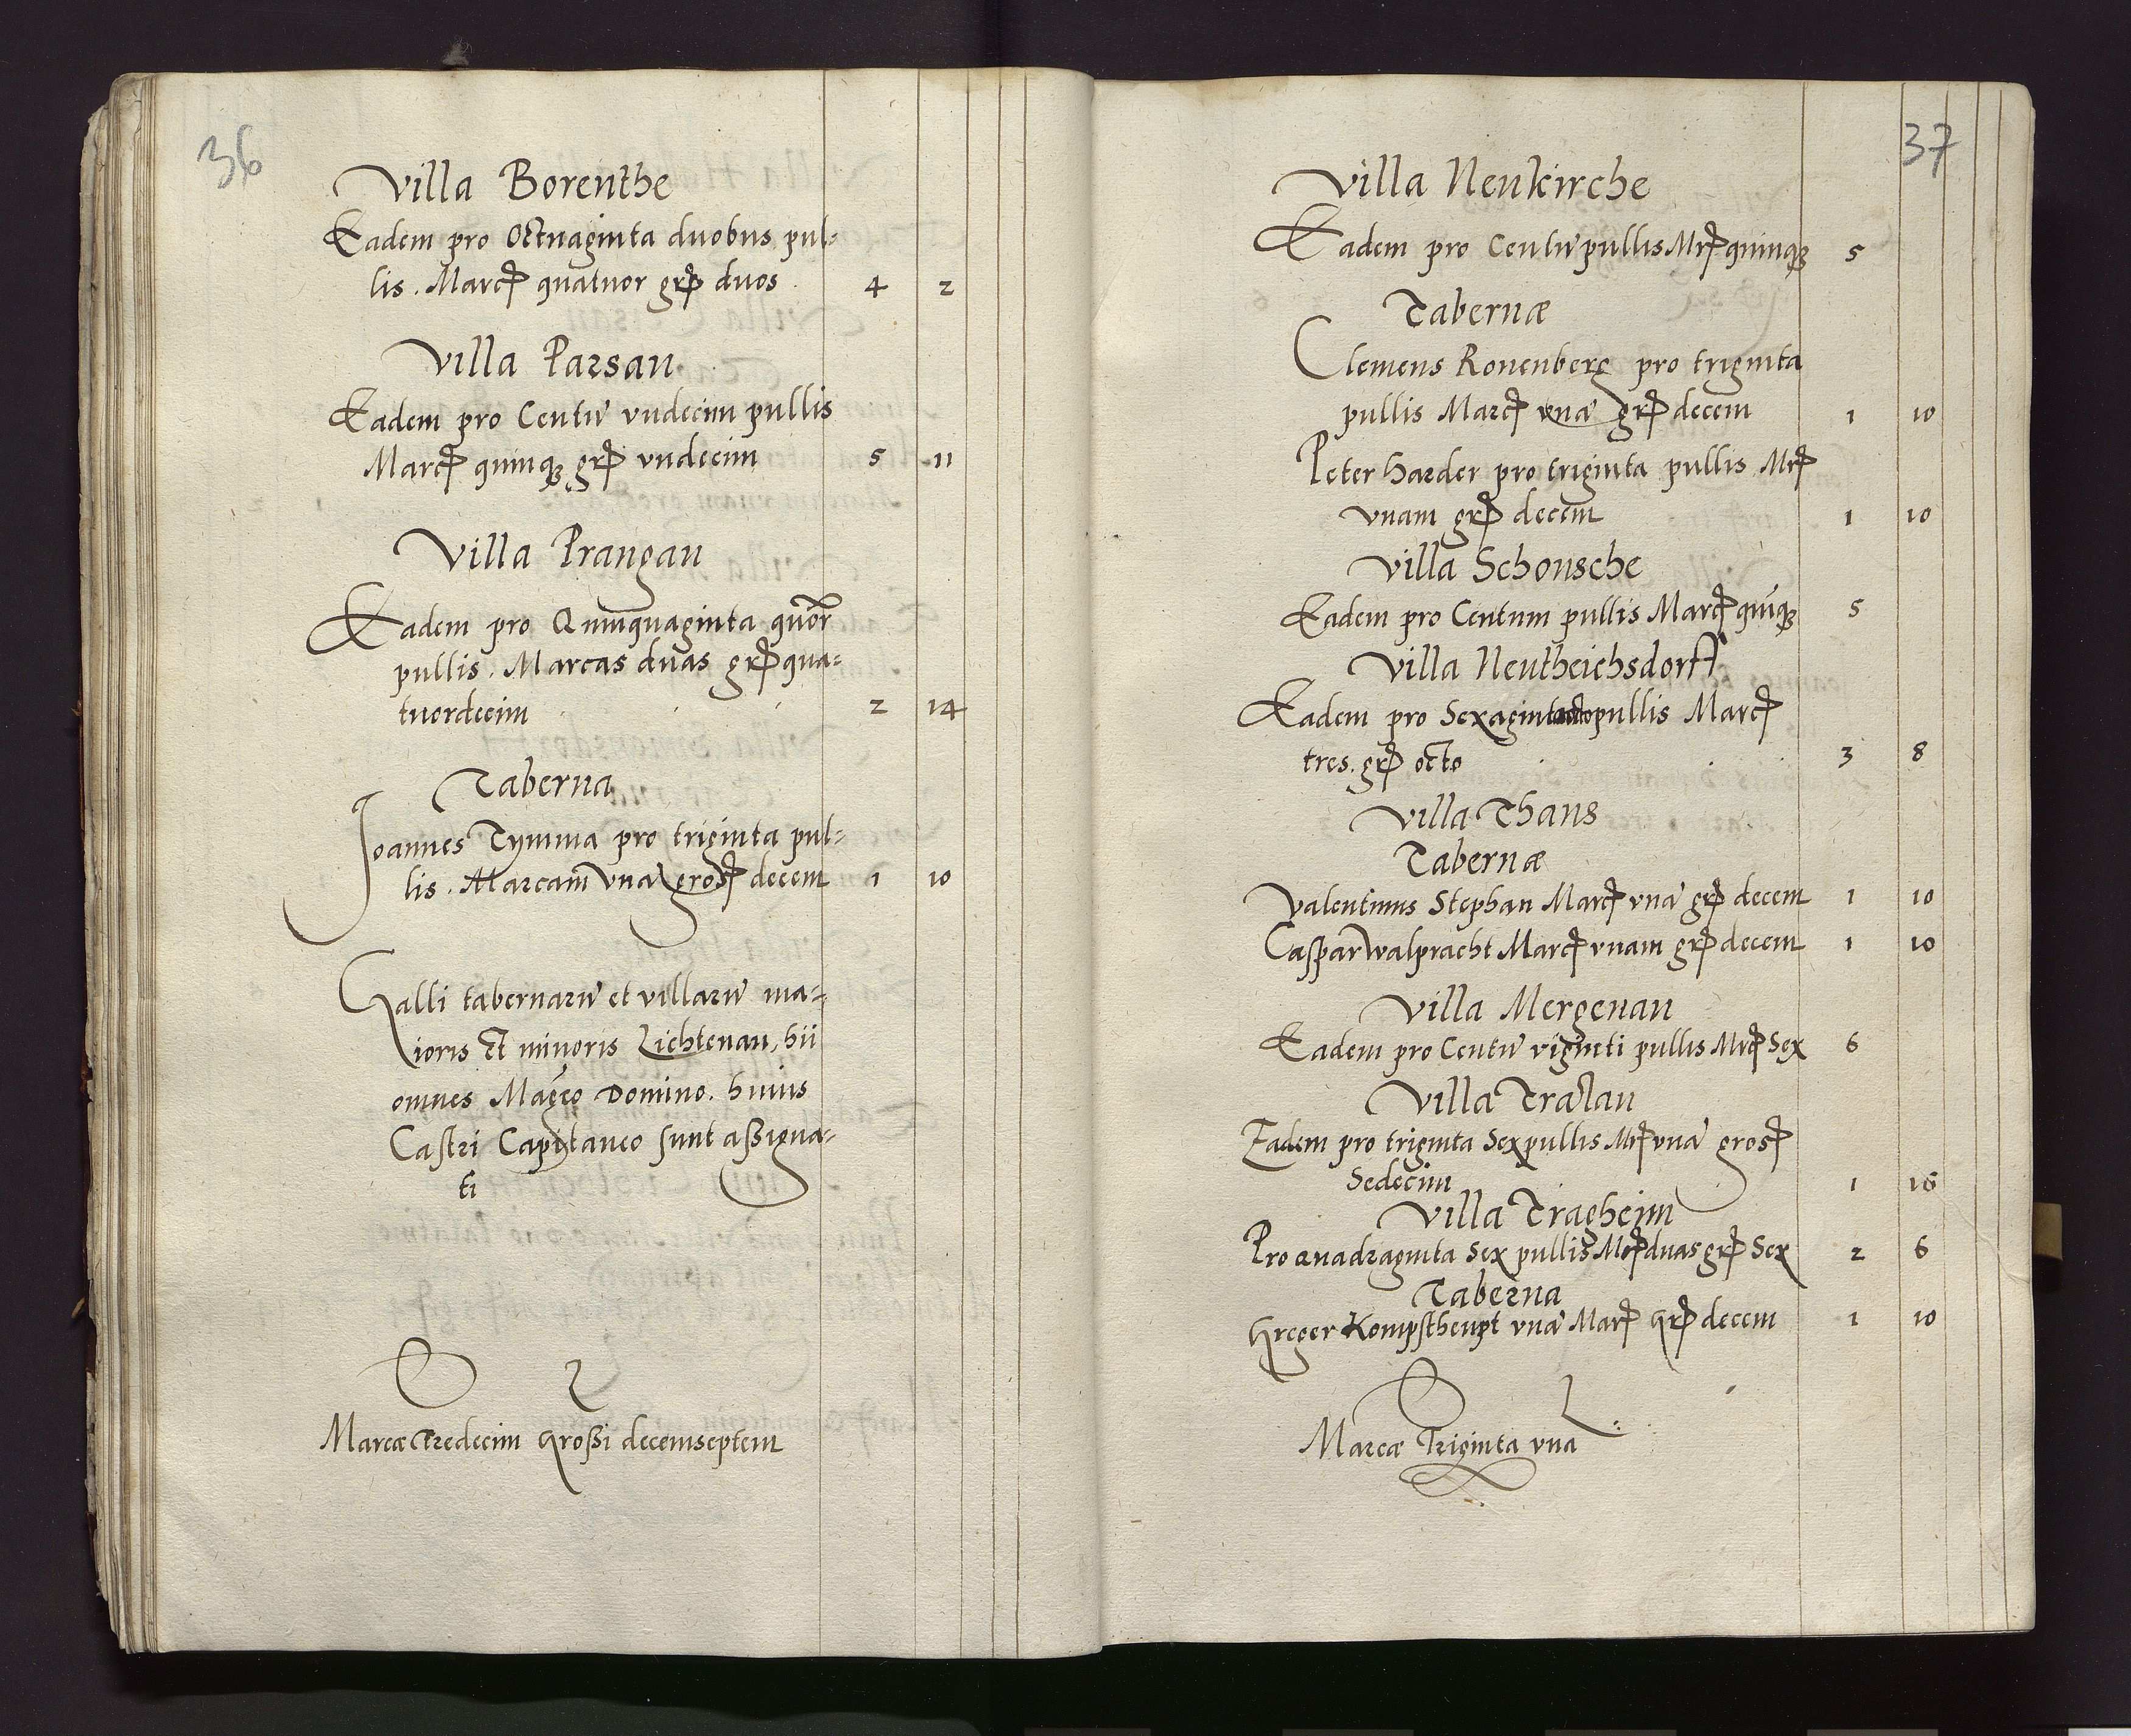 36
Villa Borenthe
Eadem pro Octuaginta duobus pul-
lis. Marcas quatuor gros duos 4 2
Villa Parsau
Eadem pro Centũ vndecim pullis
Marcas quinq; gros vndecim 5 11
Villa Prangau
Eadem pro Quinquaginta quor
pullis. Marcas duas gros qua=
tuordecim 2 14
Taberna
Joannes Tymma pro triginta pul=
lis. Marcam vnã gros decem 1 10
Galli tabernarũ et villarũ ma=
ioris et minoris Lichtenau, hii
omnes Mag͂co Domino. huius
Castri Capitaneo sunt assigna=
ti
Marcæ Tredecim Grossi decemseptem
37
Villa Neukirche
Eadem pro Centũ pullis Mrs quinq; 5
Tabernæ
Clemens Ronenberg pro triginta
pullis Marcs vnã gros decem 1 10
Peter Harder pro triginta pullis Mrs
vnam gros decem 1 10
Villa Schonsche
Eadem pro Centum pullis Marcs quĩq; 5
Villa Neutheichsdorff
Eadem pro Sexaginta octo pullis Marcs
tres. gros octo 3 8
Villa Thans
Tabernæ
Valentinus Stephan Marcs vnã gros decem 1 10
Caspar Walpracht Marcs vnam gros decem 1 10
Villa Mergenau
Eadem pro Centũ viginti pullis Mrcs Sex 6
Villa Tralau
Eadem pro triginta Sex pullis Mrs vnã gros
Sedecim 1 16
Villa Tragheim
Pro Quadraginta Sex pullis Mrs duas gros Sex 2 6
Taberna
Greger Kompstheupt vnã Mars Gros decem 1 10
Marcæ Triginta vna